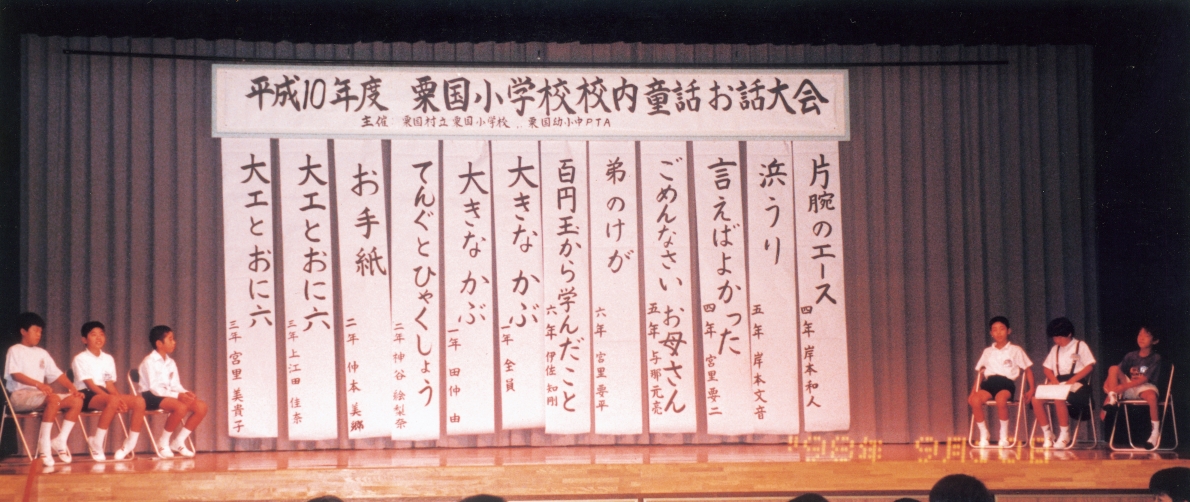 平成10年度 粟国小学校校内童話お話大会
主催 粟国村立粟国小学校 粟国幼小中PTA
片腕のエース
四年 岸本和人
浜うり
五年 岸本文音
言えばよかった
四年 宮里要二
ごめんなさいお母さん
五年 与那元亮
弟のけが
六年 宮里要平
百円玉から学んだこと
六年 伊佐知剛
大きなかぶ
一年 全員
大きなかぶ
一年 田仲由
てんぐとひゃくしょう
二年 神谷絵梨奈
お手紙
二年 仲本美
大工とおに六
三年 上江田佳奈
大工とおに六
三年 宮里美貴子